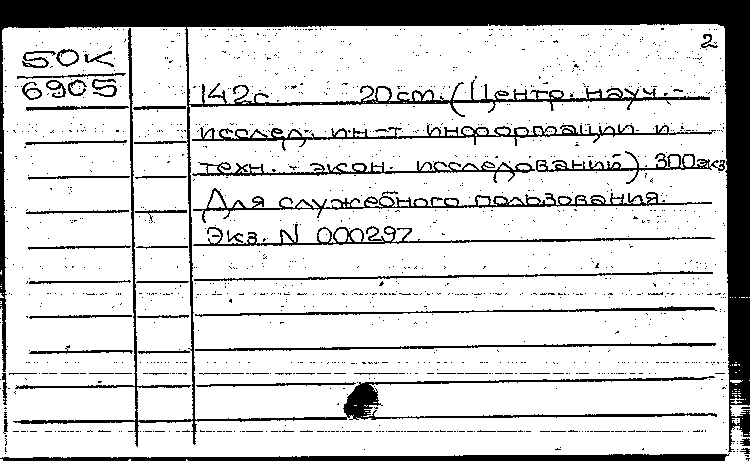 2
50К
6905
142с. 20ст. (Центр. науч.-
исслед. ин-т информации и
техн.-экон. исследований). 300экз
Для служебного пользования.
Экз. N 000297.